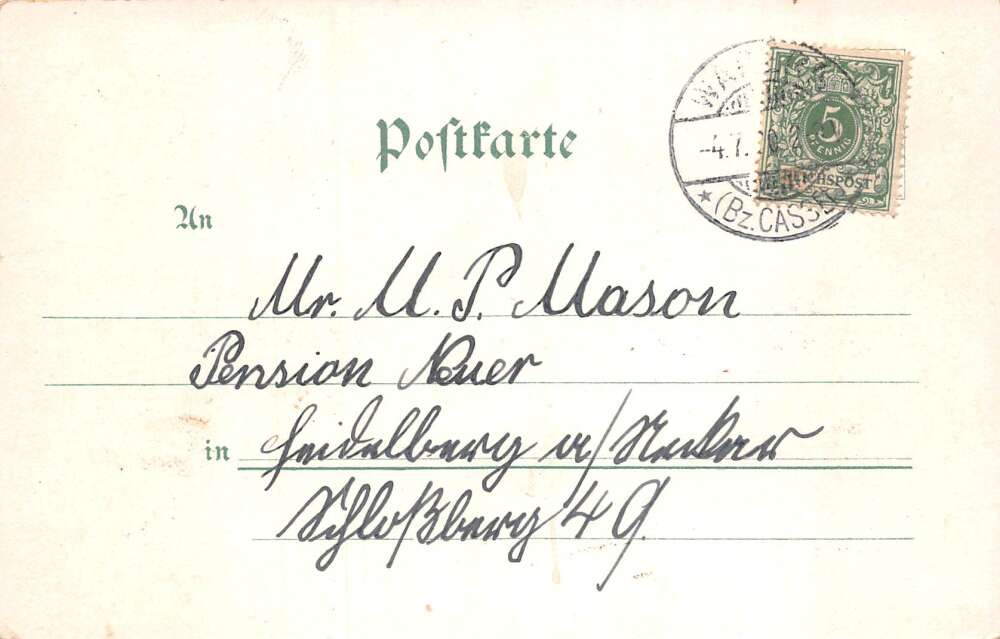 Postkarte
5
PFENNIG
REICHSPOST
-4.7.
* (Bz. CASSEL)
An
Mr. M. P. Mason
Pension Neuer
in Heidelberg a/Neckar
Schloßberg 49.